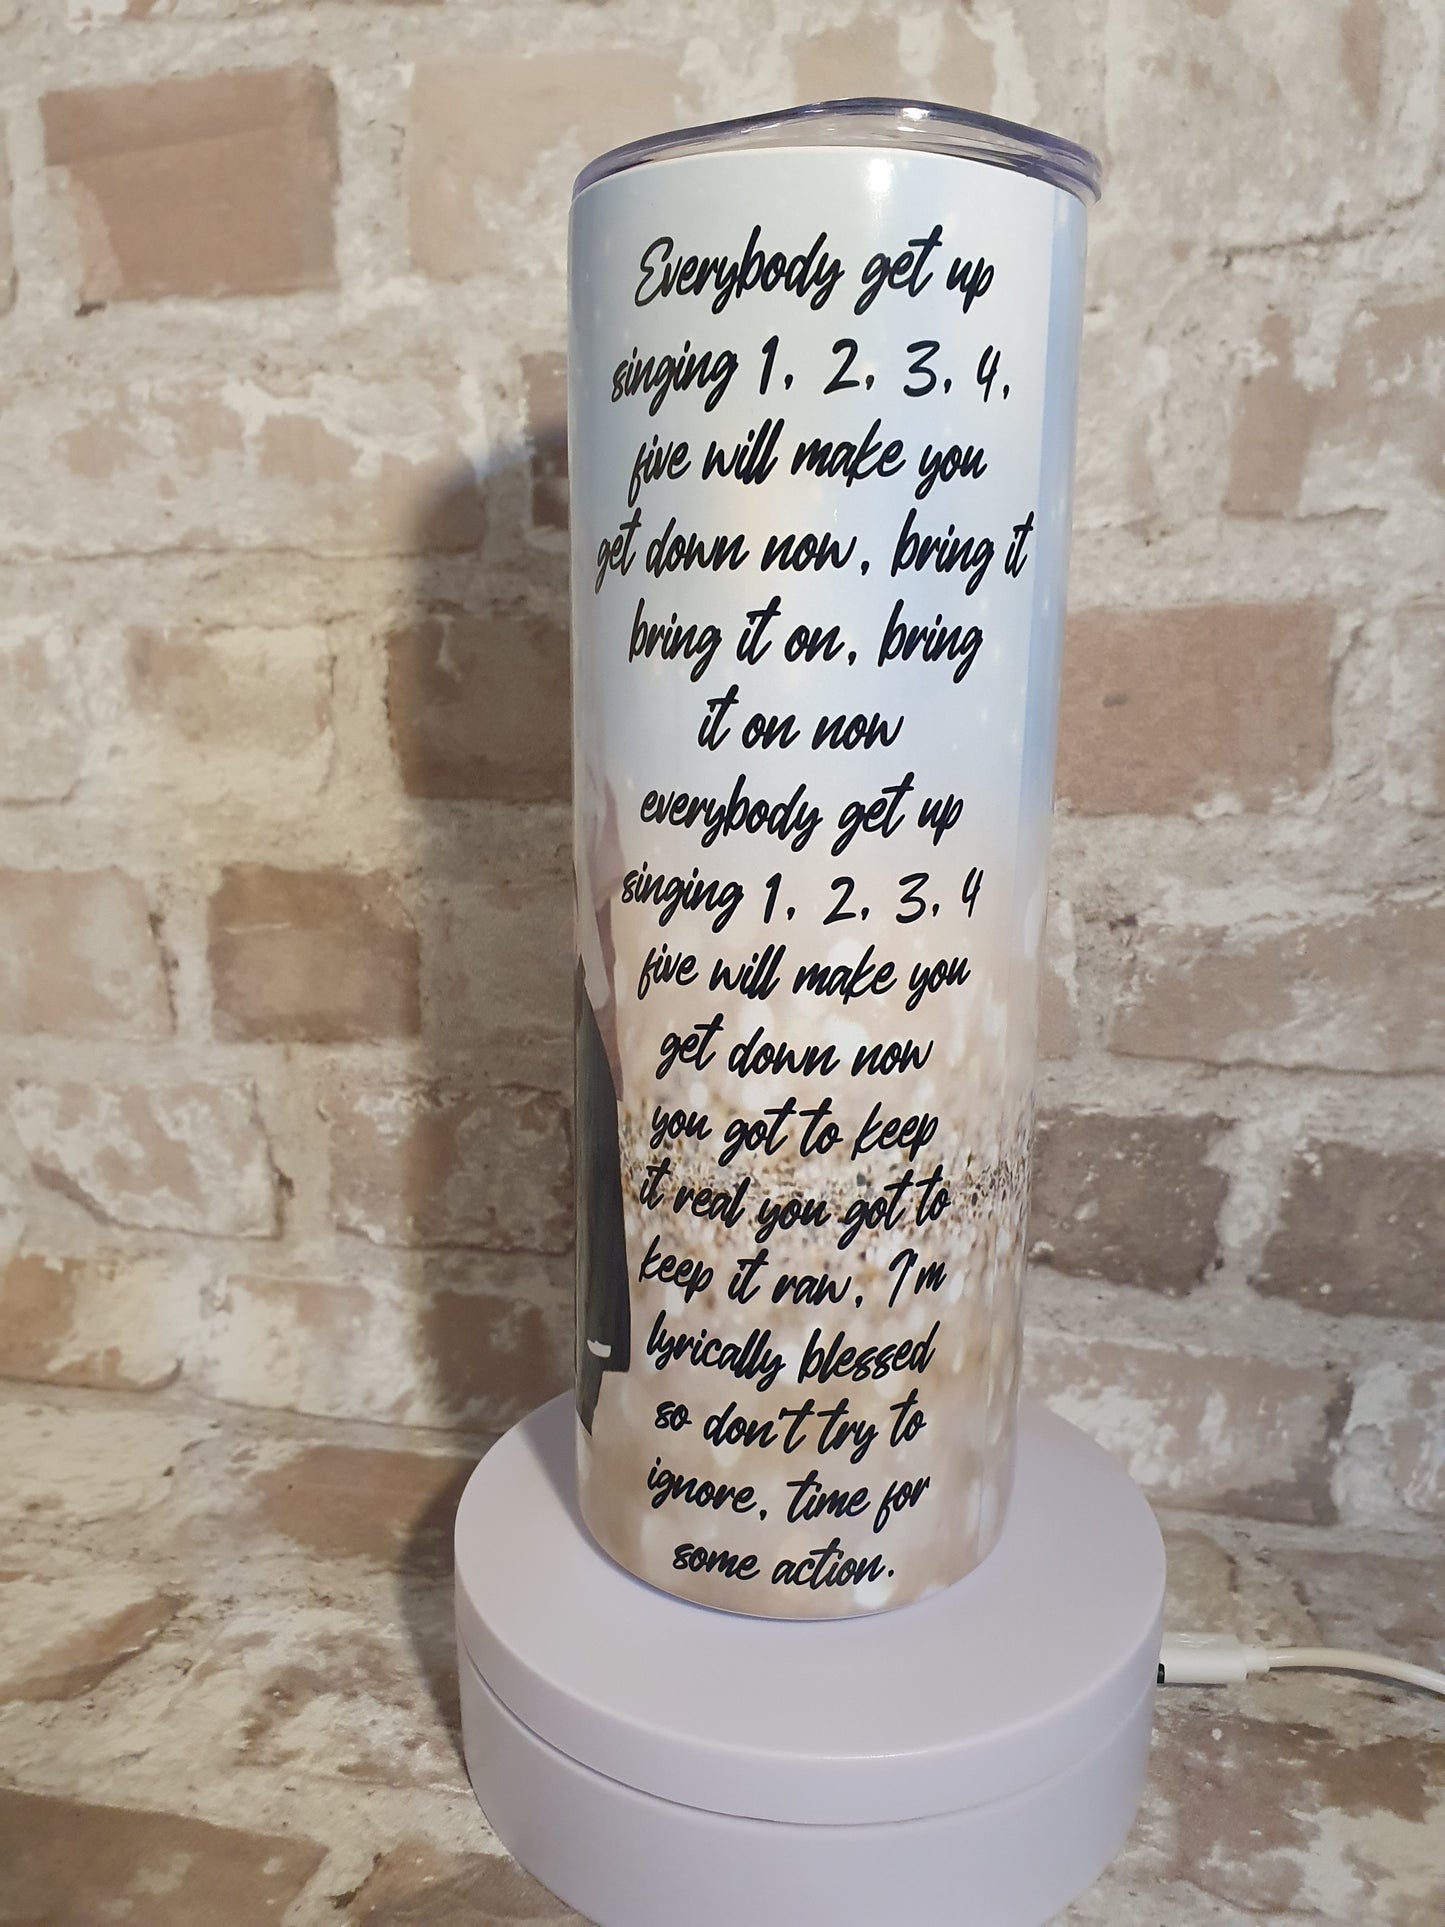 Everybody get up
singing 1, 2, 3, 4,
five will make you
get down now, bring it
bring it on, bring
it on now
everybody get up
singing 1, 2, 3, 4
five will make you
get down now
you got to keep
it real you got to
keep it raw, I'm
lyrically blessed
so don't try to
ignore, time for
some action.